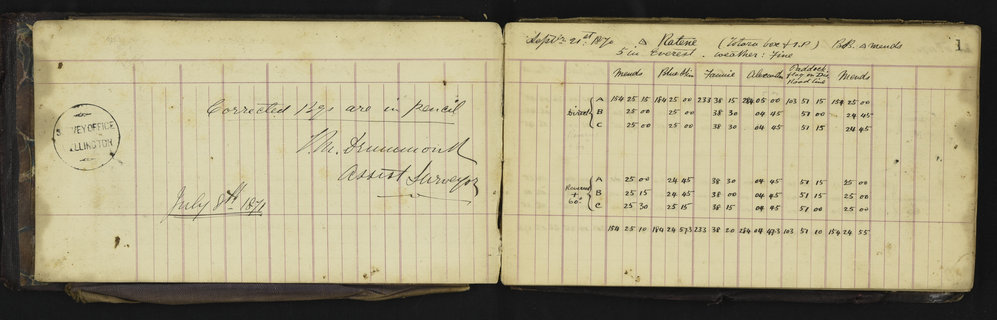 Corrected Bgs are in pencil
Drummond
Assist Surveyor
July 8th 1871
SURVEY OFFICE
WELLINGTON
1
Septr 21st 1870 △ Ratene (Totara box & I.P.) B.B. △ Mends
5 in Everest. Weather: Fine
Mends Blue Skin Fannie Paddock flag on Dis. Road line Mends
Direct { A 154 25 15 184 25 00 233 38 15 284 05 00 103 51 15 154 25 00
B 25 00 25 00 38 30 04 45 51 00 24 45
C 25 00 25 00 38 30 04 45 51 15 24 45
Reversed + 60° { A 25 00 24 45 38 30 04 45 51 15 25 00
B 25 15 24 45 38 00 04 45 51 15 25 00
C 25 30 25 15 38 15 04 45 51 00 25 00
154 25 10 184 24 57.3 233 38 20 284 04 47.3 103 51 10 154 24 55